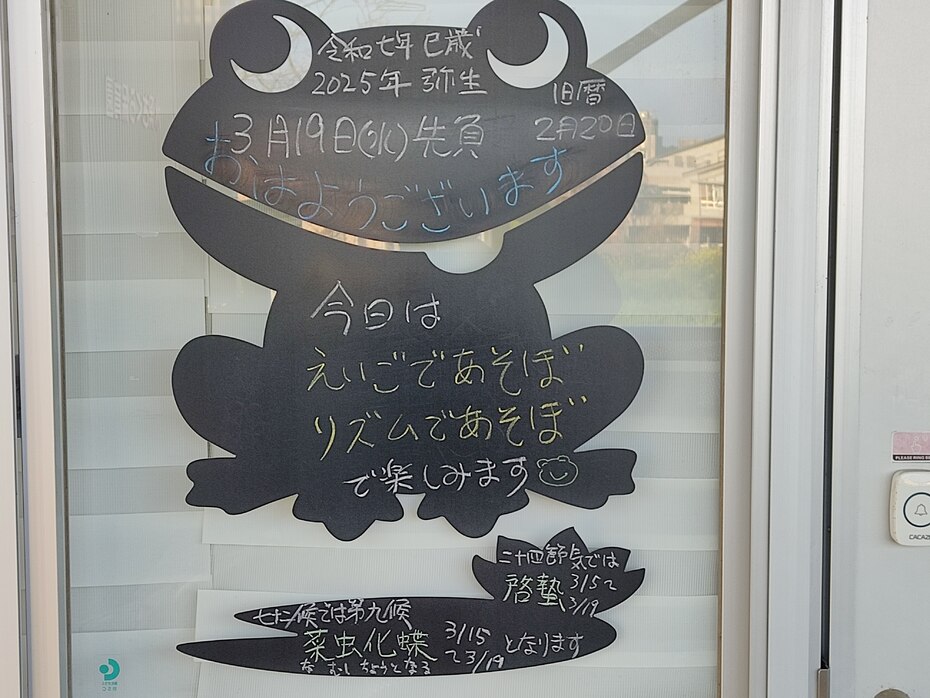 令和七年 巳歳
2025年 弥生
旧暦
3月19日(水)先負
2月20日
おはようございます
今日は
えいごであそぼ
リズムであそぼ
で楽しみます
二十四節気では
啓蟄 3/5〜
3/19
七十二候では第九候
菜虫化蝶 3/15
〜3/19
となります
なむしちょうとなる
PLEASE RING
CACAZI